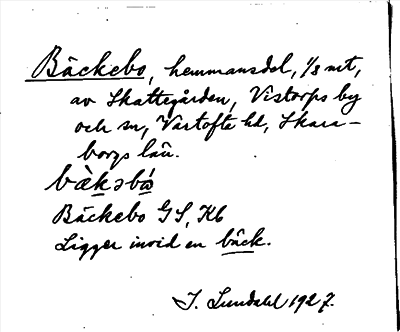 Bäckebo, hemmansdel, 1/8 mt,
av Skattegården, Vistorps by
och sn, Vartofta hd, Skara-
borgs län.
bä̀kəbó
Bäckebo GS, Kb
Ligger invid en bäck.
I. Lundahl 1927.